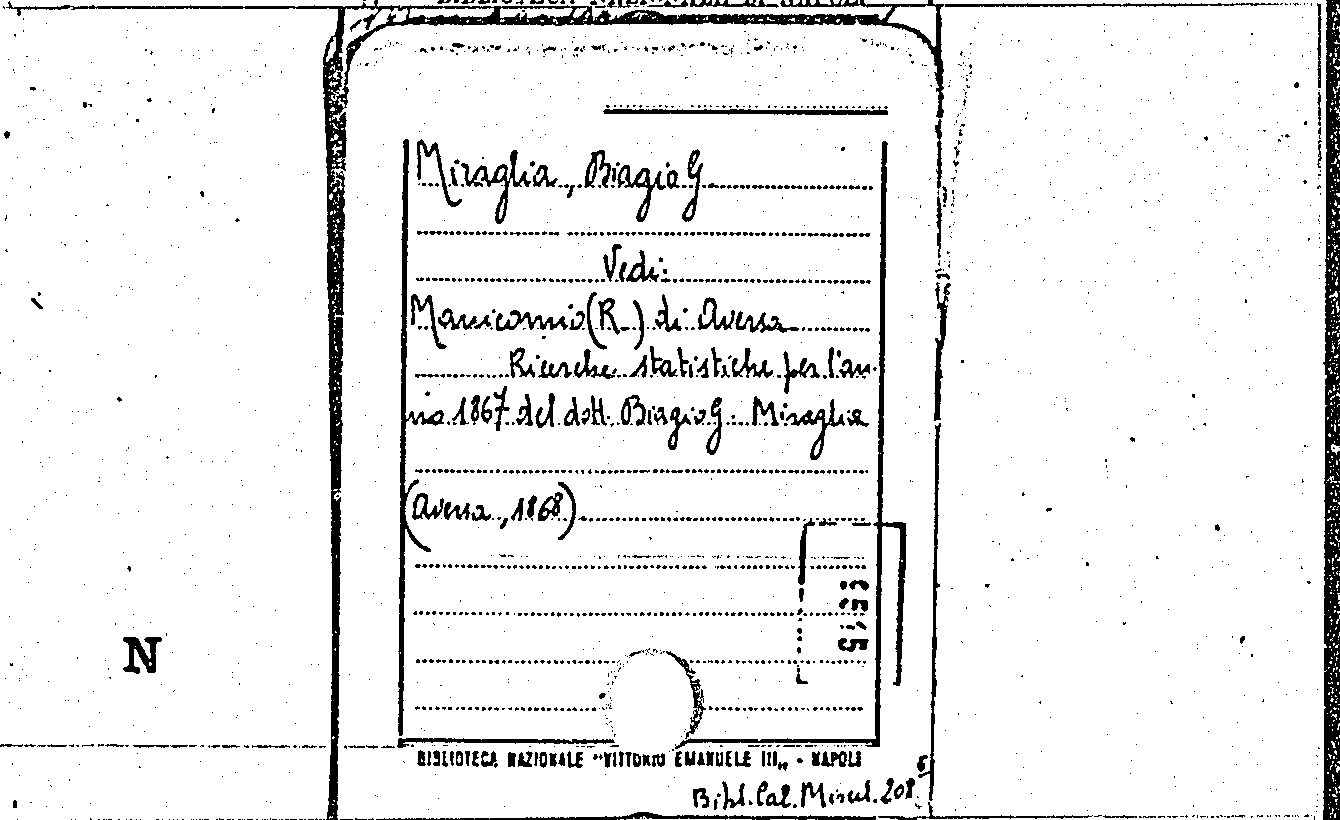 BIBLIOTECA NAZIONALE DI NAPOLI
Miraglia, Biagio G.
Vedi:
Manicomio (R.) di Aversa
Ricerche statistiche per l'an-
no 1867 del dott. Biagio G. Miraglia
(Aversa, 1868)
N
BIBLIOTECA NAZIONALE "VITTORIO EMANUELE III„ - NAPOLI
Bibl. Cal. Miscel. 208